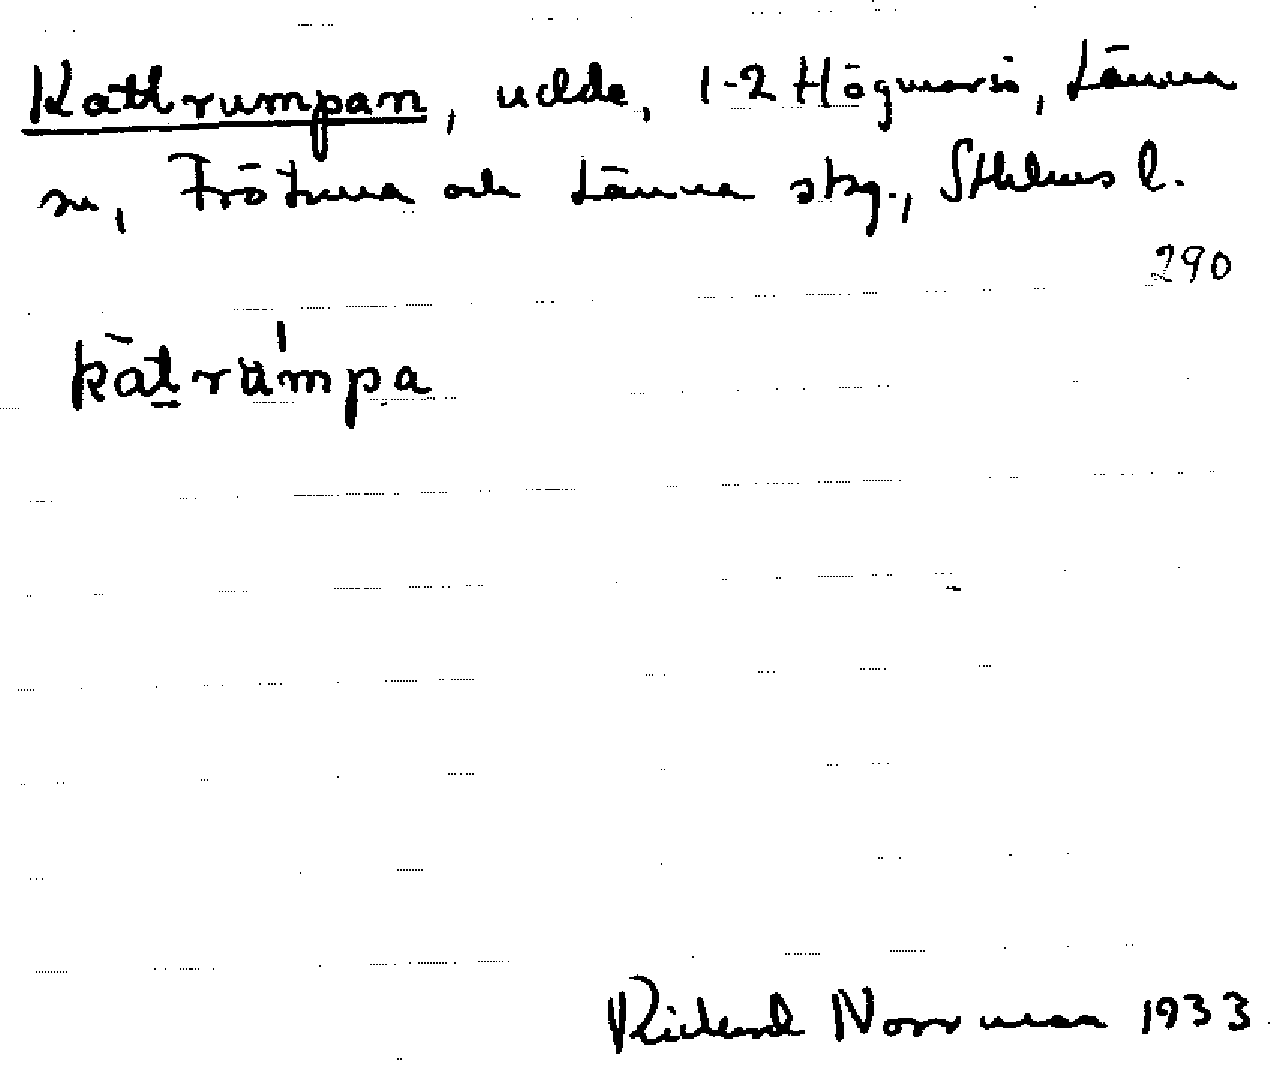 Kattrumpan, udde, 1-2 Högmarsö, Länna
sn, Frötuna och Länna skg., Sthlms l.
290
katrumpa
Rickard Norrman 1933